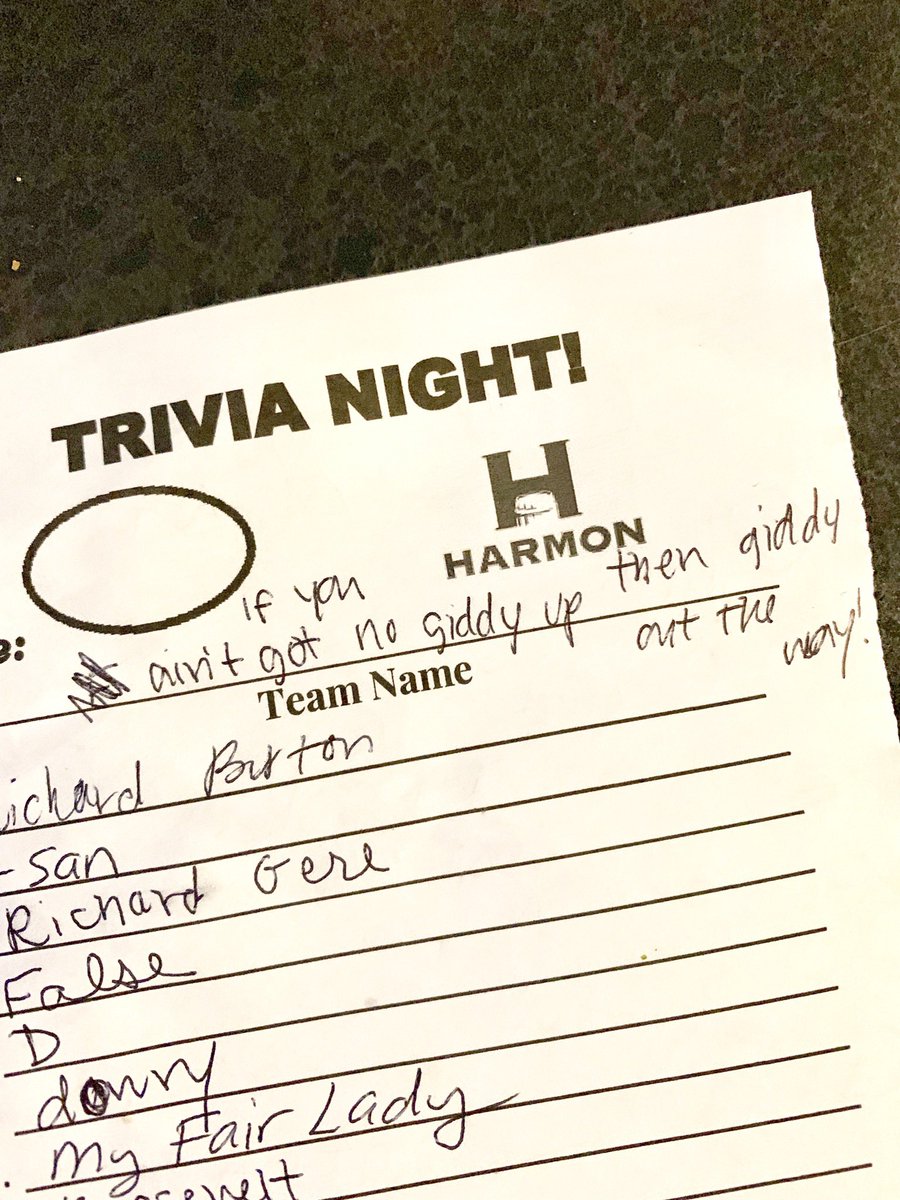 TRIVIA NIGHT!
H
HARMON
e:
If you
ain't got no giddy up then giddy
out the
way!
Team Name
Richard Burton
-san
Richard Gere
False
D
downy
My Fair Lady